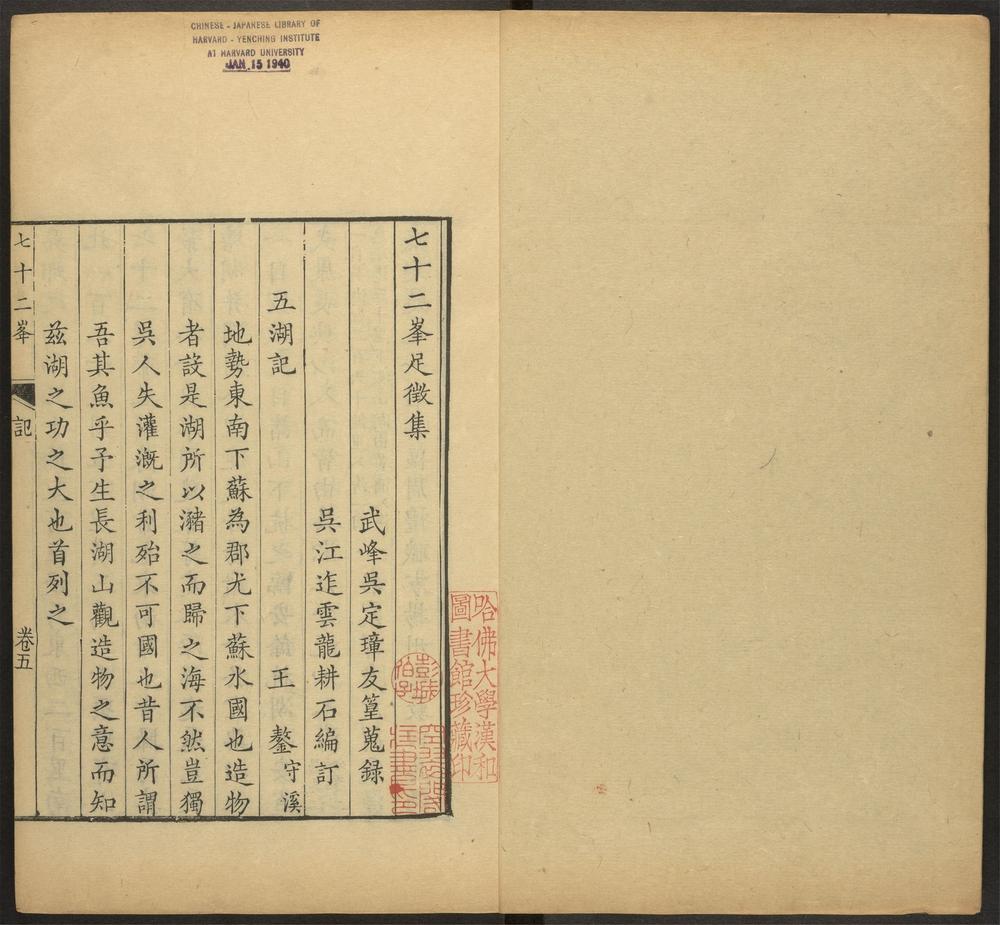 CHINESE - JAPANESE LIBRARY OF
HARVARD - YENCHING INSTITUTE
AT HARVARD UNIVERSITY
JAN 15 1940
七十二峯足徵集
武峰吳定璋友篁蒐錄
吳江迮雲龍耕石編訂
五湖記 王鏊守溪
地勢東南下蘇為郡尤下蘇水國也造物
者設是湖所以瀦之而歸之海不然豈獨
吳人失灌溉之利殆不可國也昔人所謂
吾其魚乎予生長湖山觀造物之意而知
茲湖之功之大也首列之
七十二峯 記 卷五
哈佛大學漢和
圖書館珍藏印